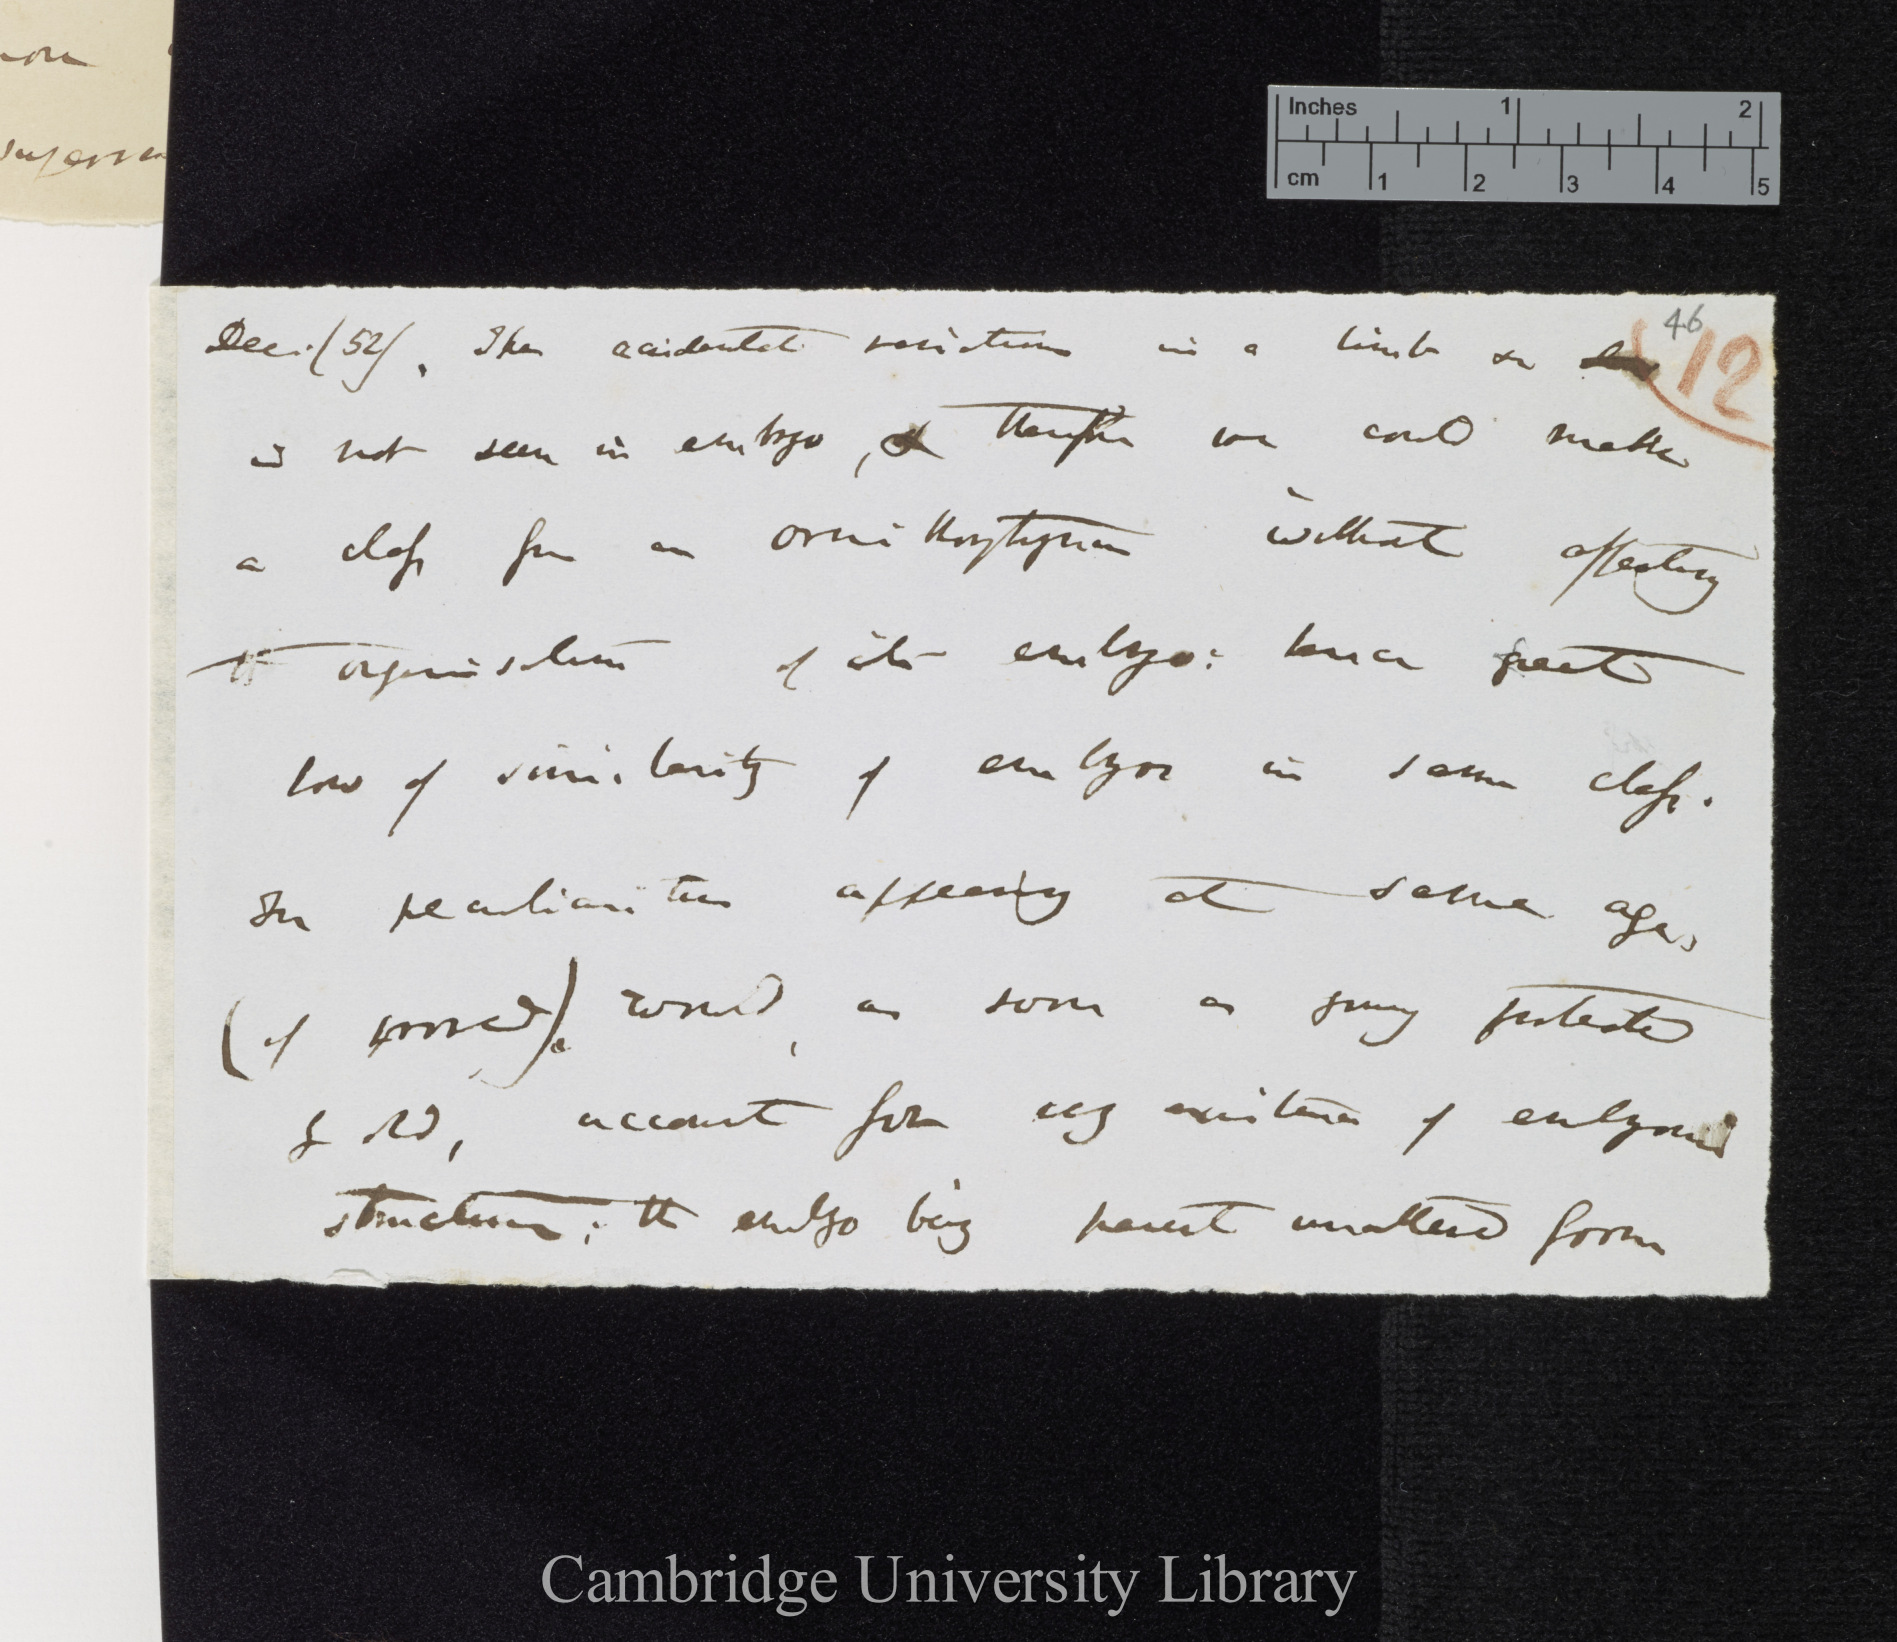 non
superven
Inches 1 2
cm 1 2 3 4 5
46
12
Dec. (52), The accidental variations in a limb or
is not seen in embryo, & therefore we could make
a class for an ornithorhynchus without affecting
the organisation of its embryo: hence great
law of similarity of embryos in same class.
The peculiarities appearing at same age,
(if proved), would, as soon as young protected
by old, account for very existence of embryonic
structure; the embryo being parent unaltered form
Cambridge University Library